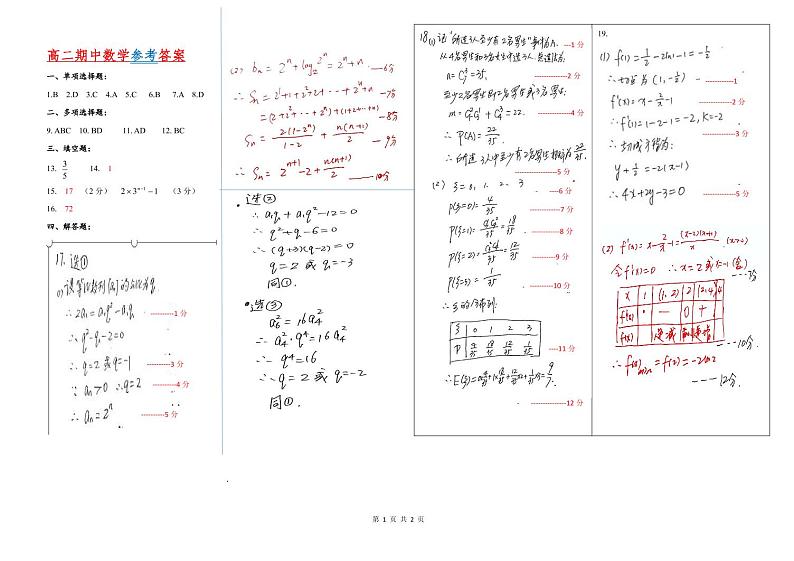 高二期中数学参考答案
一、单项选择题:
1.B 2.D 3.C 4.A 5.C 6.B 7.A 8.D
二、多项选择题:
9. ABC 10. BD 11. AD 12. BC
三、填空题:
13. 3/5 14. 1
15. 17 (2分) 2×3^(n-1)-1 (3分)
16. 72
四、解答题:
17. 选①
∴ 2a₁=a₁q²-a₁q ----------1分
∴ q²-q-2=0
∴ q=2或q=-1 ----------3分
∵ aₙ>0 ∴q=2 ----------4分
∴ aₙ=2ⁿ ----------5分
(2) bₙ=2ⁿ+log₂2ⁿ=2ⁿ+n ——6分
∴ Sₙ=2¹+1+2²+2+···+2ⁿ+n —7分
=(2+2²+···+2ⁿ)+(1+2+···+n) —8分
Sₙ=2(1-2ⁿ)/(1-2)+n(n+1)/2 —9分
∴ Sₙ=2^(n+1)-2+n(n+1)/2 ——10分
选②
∴ a₁q+a₁q²-12=0
∴ q²+q-6=0
∴ (q+3)(q-2)=0
q=2或q=-3
同①.
选③
a₆²=16a₄²
∴ a₄²·q⁴=16a₄²
∴ q⁴=16
∴ q=2或q=-2
同①.
18(1) 记"所选3人至少有2名男生"事件为A. ---1分
从4名男生和3名女生中选3人,总选法为:
n=C₇³=35, ----------2分
至少2名男生即2名男生或3名男生:
m=C₄²C₃¹+C₄³=22. ----------4分
∴ P(A)=22/35
∴所选3人中至少有2名男生概率为22/35
----------5分
(2) ξ=0, 1, 2, 3 ----------6分
P(ξ=0)=4/35 ----------7分
P(ξ=1)=C₄²C₃¹/35=18/35 ----------8分
P(ξ=2)=C₄¹C₃²/35=12/35 ----------9分
P(ξ=3)=1/35 ----------10分
∴ξ的分布列:
ξ 0 1 2 3
P 4/35 18/35 12/35 1/35 ----11分
∴E(ξ)=0×4/35+1×18/35+2×12/35+3×1/35=9/7.
----------12分
19.
(1) f(1)=1/2-2ln1-1=-1/2
∴切点(1,-1/2) ----------1分
f'(x)=x-2/x-1 ----------2分
∴f'(1)=1-2-1=-2, K=-2
----------3分
∴切线方程为:
y+1/2=-2(x-1)
∴4x+2y-3=0 ----------5分
(2) f'(x)=x-2/x-1=(x-2)(x+1)/x (x>0)
令f'(x)=0 ∴x=2或x=-1(舍)
---7分
x 1 (1,2) 2 (2,4) 4
f'(x) - 0 +
f(x) 递减 递增
---10分
∴f(x)min=f(2)=-2ln2
----12分
第 1 页 共 2 页